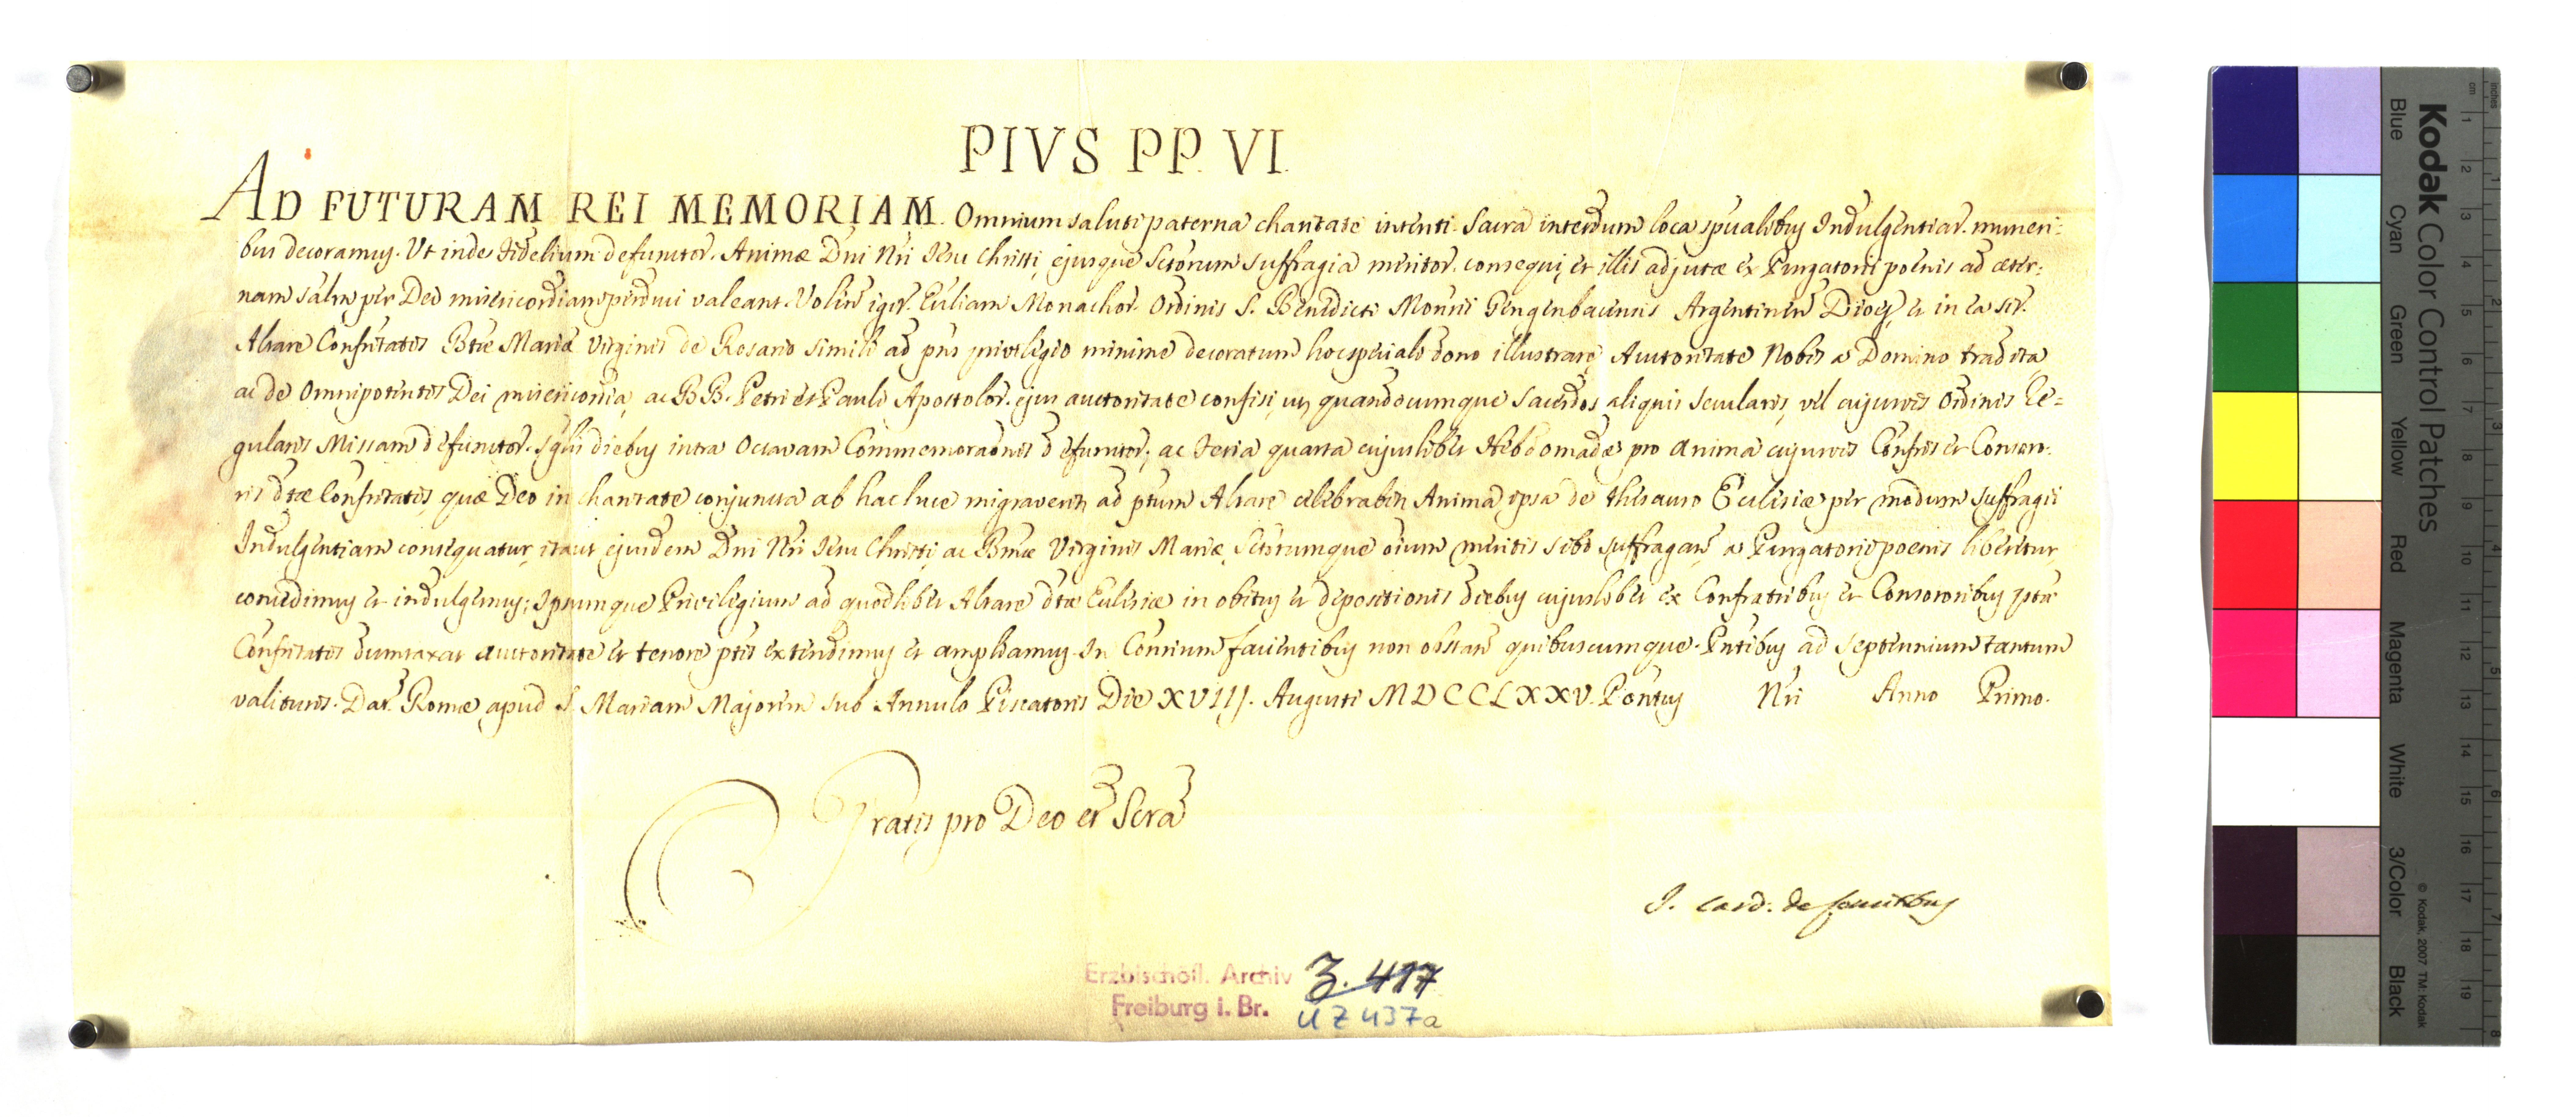 PIVS PP. VI.
AD FUTURAM REI MEMORIAM. Omnium saluti paterna charitate intenti Sacra interdum loca spūalibus Indulgentiar. muneri=
bus decoramus. Ut inde Fidelium defunctor. Animæ Dñi Nr̃i Jesu Christi, ejusque Sctorum suffragia meritor. consequi, et illis adjutæ ex Purgatorii poenis ad æter=
nam salm̃ per Dei misericordiam perduci valeant. Volm̃ igit. Ecc̃liam Monachor. Ordinis S. Benedicti Monrii Gengenbacensis Argentineñ Dioeĉ, et in ea sit.
Altare Confr̃itatis Btæ Mariæ Virginis de Rosario simili ad pñs privilegio minime decoratum hoc speciali dono illustrare, Auctoritate Nobis a Domino tradita,
ac de Omnipotentis Dei misericordia, ac BB. Petri et Pauli Apostolor. ejus auctoritate confisi, ut quandocumque Sacerdos aliquis Secularis, vel cujusvis Ordinis Re=
gularis Missam defunctor. sglis diebus intra Octavam Commemoraõnis defunctor., ac Feria quarta cujuslibet Hebdomadæ pro Anima cujusvis Confr̃is et Consoro=
ris dtæ Confr̃itatis, quæ Deo in charitate conjuncta ab hac luce migraverit, ad ptum Altare celebrabit, Anima ipsa de thesauro Ecclesiæ per modum suffragii
Indulgentiam consequatur, ita ut ejusdem Dñi Nr̃i Jesu Christi, ac Bmæ Virginis Mariæ, Sctorumque oium meritis sibi suffragañ a Purgatorii poenis liberetur,
concedimus et indulgemus; Ipsumque Privilegium ad quodlibet Altare dtæ Ecclesiæ in obitus et depositionis diebus cujuslibet ex Confratribus et Consororibus ptæ
Confr̃itatis dumtaxat auctoritate et tenore ptis extendimus et ampliamus. In Con̄rium facientibus non obstañ quibuscumque. Pñtibus ad Septennium tantum
valituris. Dat. Romæ apud S. Mariam Majorem sub Annulo Piscatoris Die XVIII. Augusti MDCCLXXV. Pontus Nri Anno Primo.
Gratis pro Deo et Scra
J. Card. de Comitibus
Erzbischöfl. Archiv Z. 417
Freiburg i. Br. UZ 437a
Kodak Color Control Patches
© Kodak, 2007 TM: Kodak
Blue Cyan Green Yellow Red Magenta White 3/Color Black
cm 1 2 3 4 5 6 7 8 9 10 11 12 13 14 15 16 17 18 19
inches 1 2 3 4 5 6 7 8